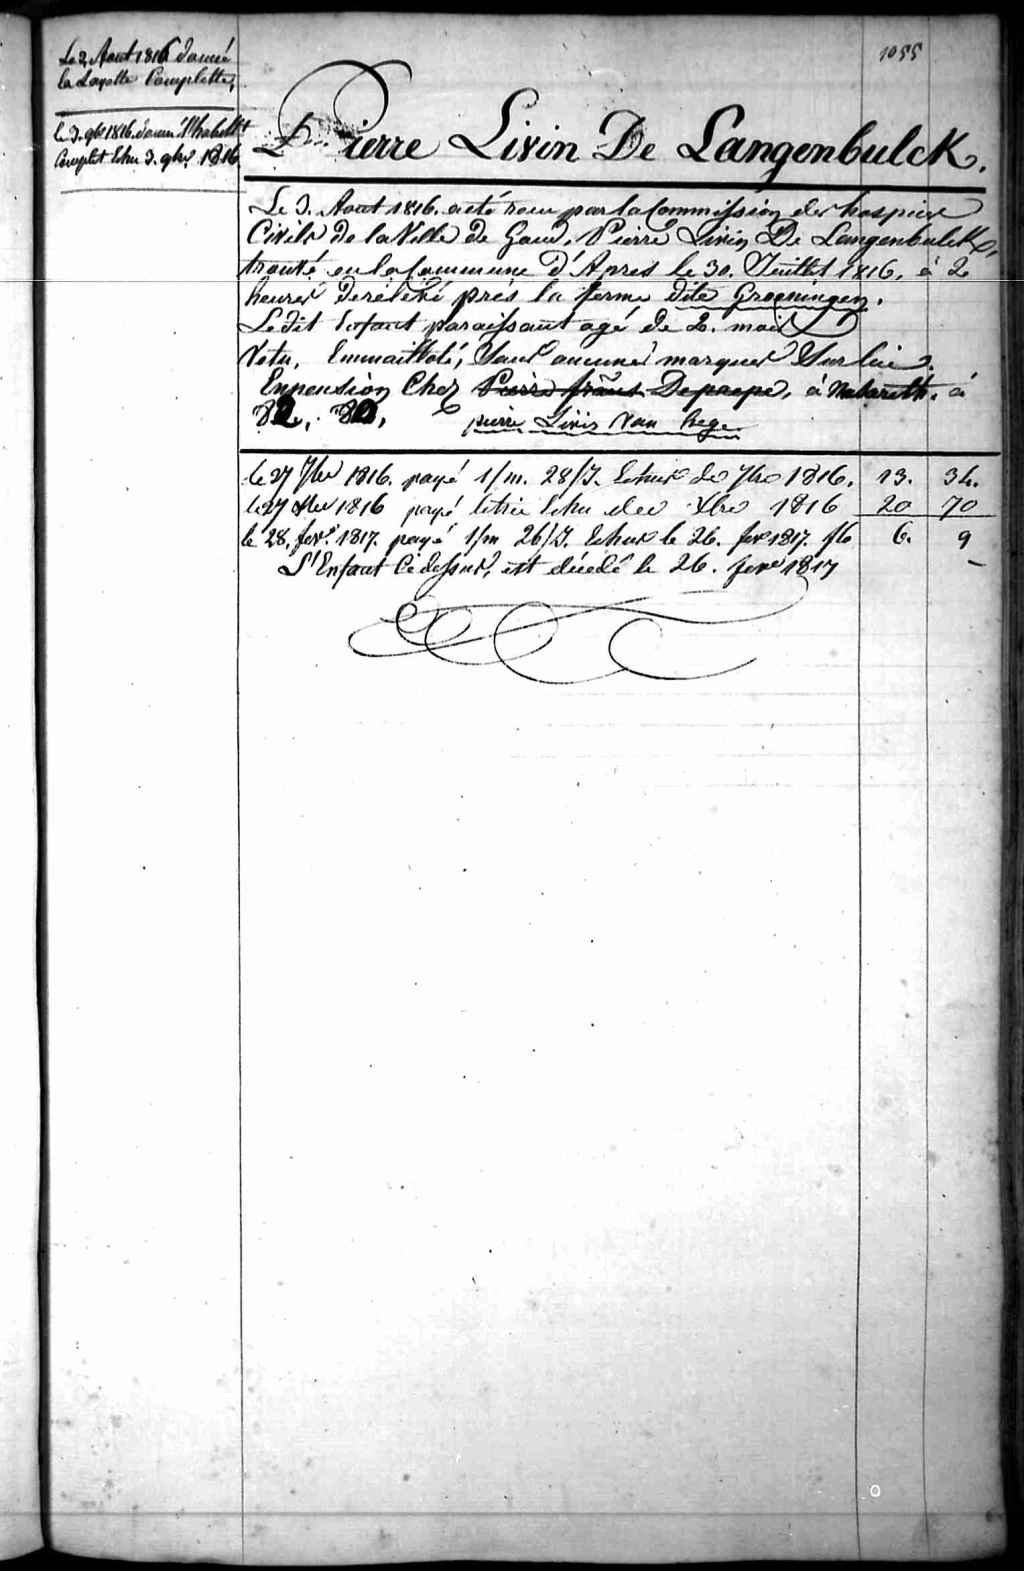 1055
Le 2 Aout 1816 donné
la Layette Complette,
le 3. 9bre 1816. donné l'habillt
Complet Echu 3. 9bre 1816
Pierre Livin De Langenbulck.
Le 3. Aout 1816. a eté recu par la Commission des hospices
Civils de la Ville de Gand, Pierre Livin De Langenbulck,
trouvé en la Commune d'Apres le 30. Juillet 1816. à 2
heures Derelické près la ferme dite Groeningen.
Ledit Enfant paraissant agé de 2. mois
Vetu, Emmaillotté, Sans aucunes marques Sur lui.
Enpension Chez Pierre frans Depaepe, à Nazareth. à
82, 80, pierre Livin Van hege
le 27 7bre 1816. payé 1/m. 28/J. Echus de 7bre 1816. 13. 34.
le 27 Xbre 1816 payé letrie Echu dec Xbre 1816 20 70
le 28. fevr. 1817. payé 1/m 26/J. Echus le 26. fevr 1817. f16 6. 9
L'Enfant Cidessus, est décédé le 26. fevr 1817 –